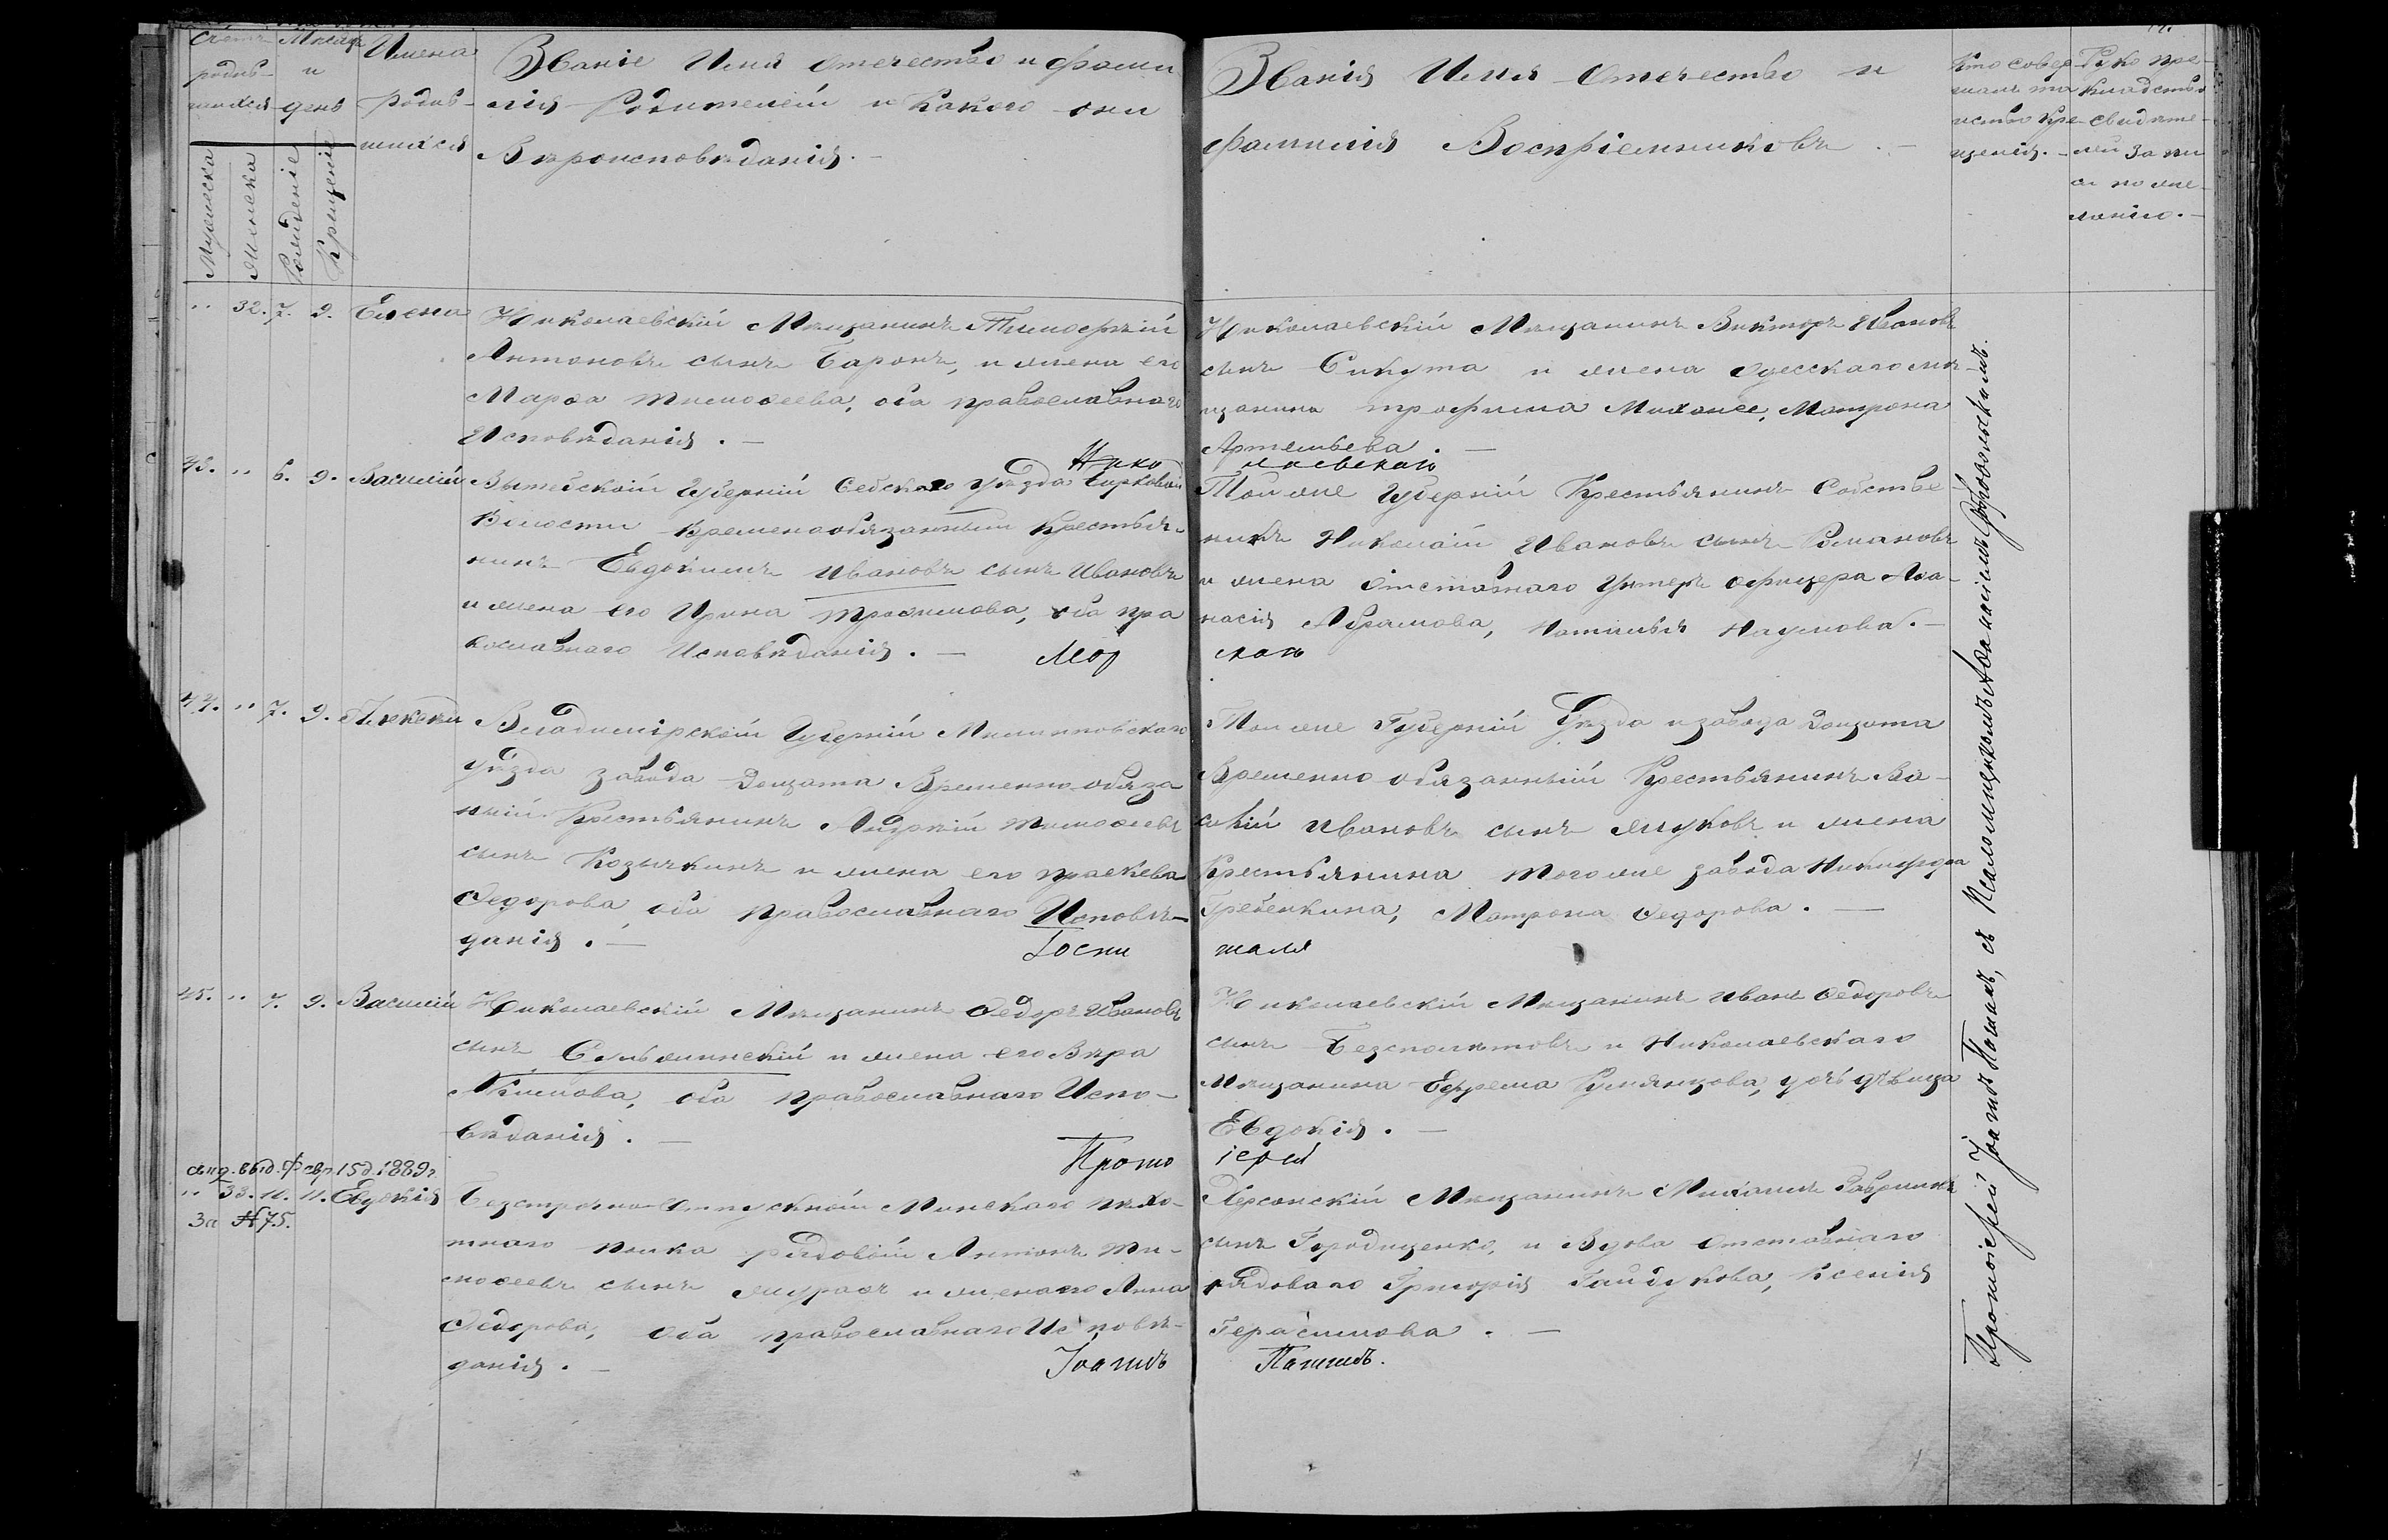 Счетъ родив-шихся
Мужеска
Женска
Мѣсяцъ и день
Рожденіе
Крещеніе
Имена Родив-шихся
Званіе Имя Отечество и фами
лія Родителей и Какого они
Вѣроисповѣданія. –
Званія Имя Отечество и
фамилія Воспріемниковъ. –
Кто совер
шалъ та
инство Кре
щенія. –
Руко при-
кладство
свидѣте-
лей запи
си по же-
ланію. –
" 32. 7. 9. Елена
Николаевскій Мѣщанинъ Тимофѣй
Антоновъ сынъ Баронъ, и жена его
Марѳа Тимоѳеева, оба православнаго
Исповѣданія. –
Николаевскій Мѣщанинъ Викторъ Ивановъ
сынъ Сикута и жена Одесскаго мѣ-
щанина Трофима Матрона
Артемьева. –
Нико лаевскаго
43. " 6. 9. Василій
Витебской Губерній Себскаго Уѣзда
Волости Временообязанный Крестья-
нинъ Евдокимъ Ивановъ сынъ Ивановъ
и жена его Ирина Троѳимова, оба пра
вославнаго Исповѣданія. –
Той же Губерній Крестьянинъ Собстве-
никъ Николай Ивановъ сынъ Романовъ
и жена Отставнаго Унтеръ Офицера Аѳа-
насія Абрамова, Наталья Наумова. –
Мор скаго
44. " 7. 9. Алексѣй
Владимірской Губерній Мелинковскаго
Уѣзда завода Дощата Временно обяза
ный Крестьянинъ Андрей Тимоѳеевъ
сынъ Козычкинъ и жена его Праскева
Ѳедорова, оба православнаго Исповѣ-
данія. –
Той же Губерній Уѣзда и завода Дощата
Временно обязанный Крестьянинъ Ва-
силій Ивановъ сынъ Жуковъ и жена
Крестьянина того же завода Никифора
Гребенкина, Матрона Ѳедорова. –
Госпи таля
45. " 7. 9. Василій
Николаевскій Мѣщанинъ Ѳедоръ Ивановъ
сынъ Сльжинскій и жена его Вѣра
Акимова, оба православнаго Испо-
вѣданія. –
Николаевскій Мѣщанинъ Иванъ Ѳедоровъ
сынъ Безсполятовъ и Николаевскаго
Мѣщанина Ефрема Румянцова, дочь дѣвица
Евдокія. –
Прото іерей
выд. Февр. 15 д. 1889 г.
" 33. 10. 11. Евдокія
За №75.
Безсрочно-Отпускной Минскаго пѣхо-
тнаго полка рядовой Антонъ Ти-
моѳеевъ сынъ Журавъ и жена его Анна
Ѳедорова, оба православнаго Исповѣ-
данія. –
Херсонскій Мѣщанинъ Михаилъ Гавриловъ
сынъ Городищенко, и Вдова Отставнаго
рядоваго Григорія Гайдукова, Ксенія
Герасимова. –
Іоаннъ
Протоіерей Іоаннъ съ Псаломщикомъ Аѳанасіемъ